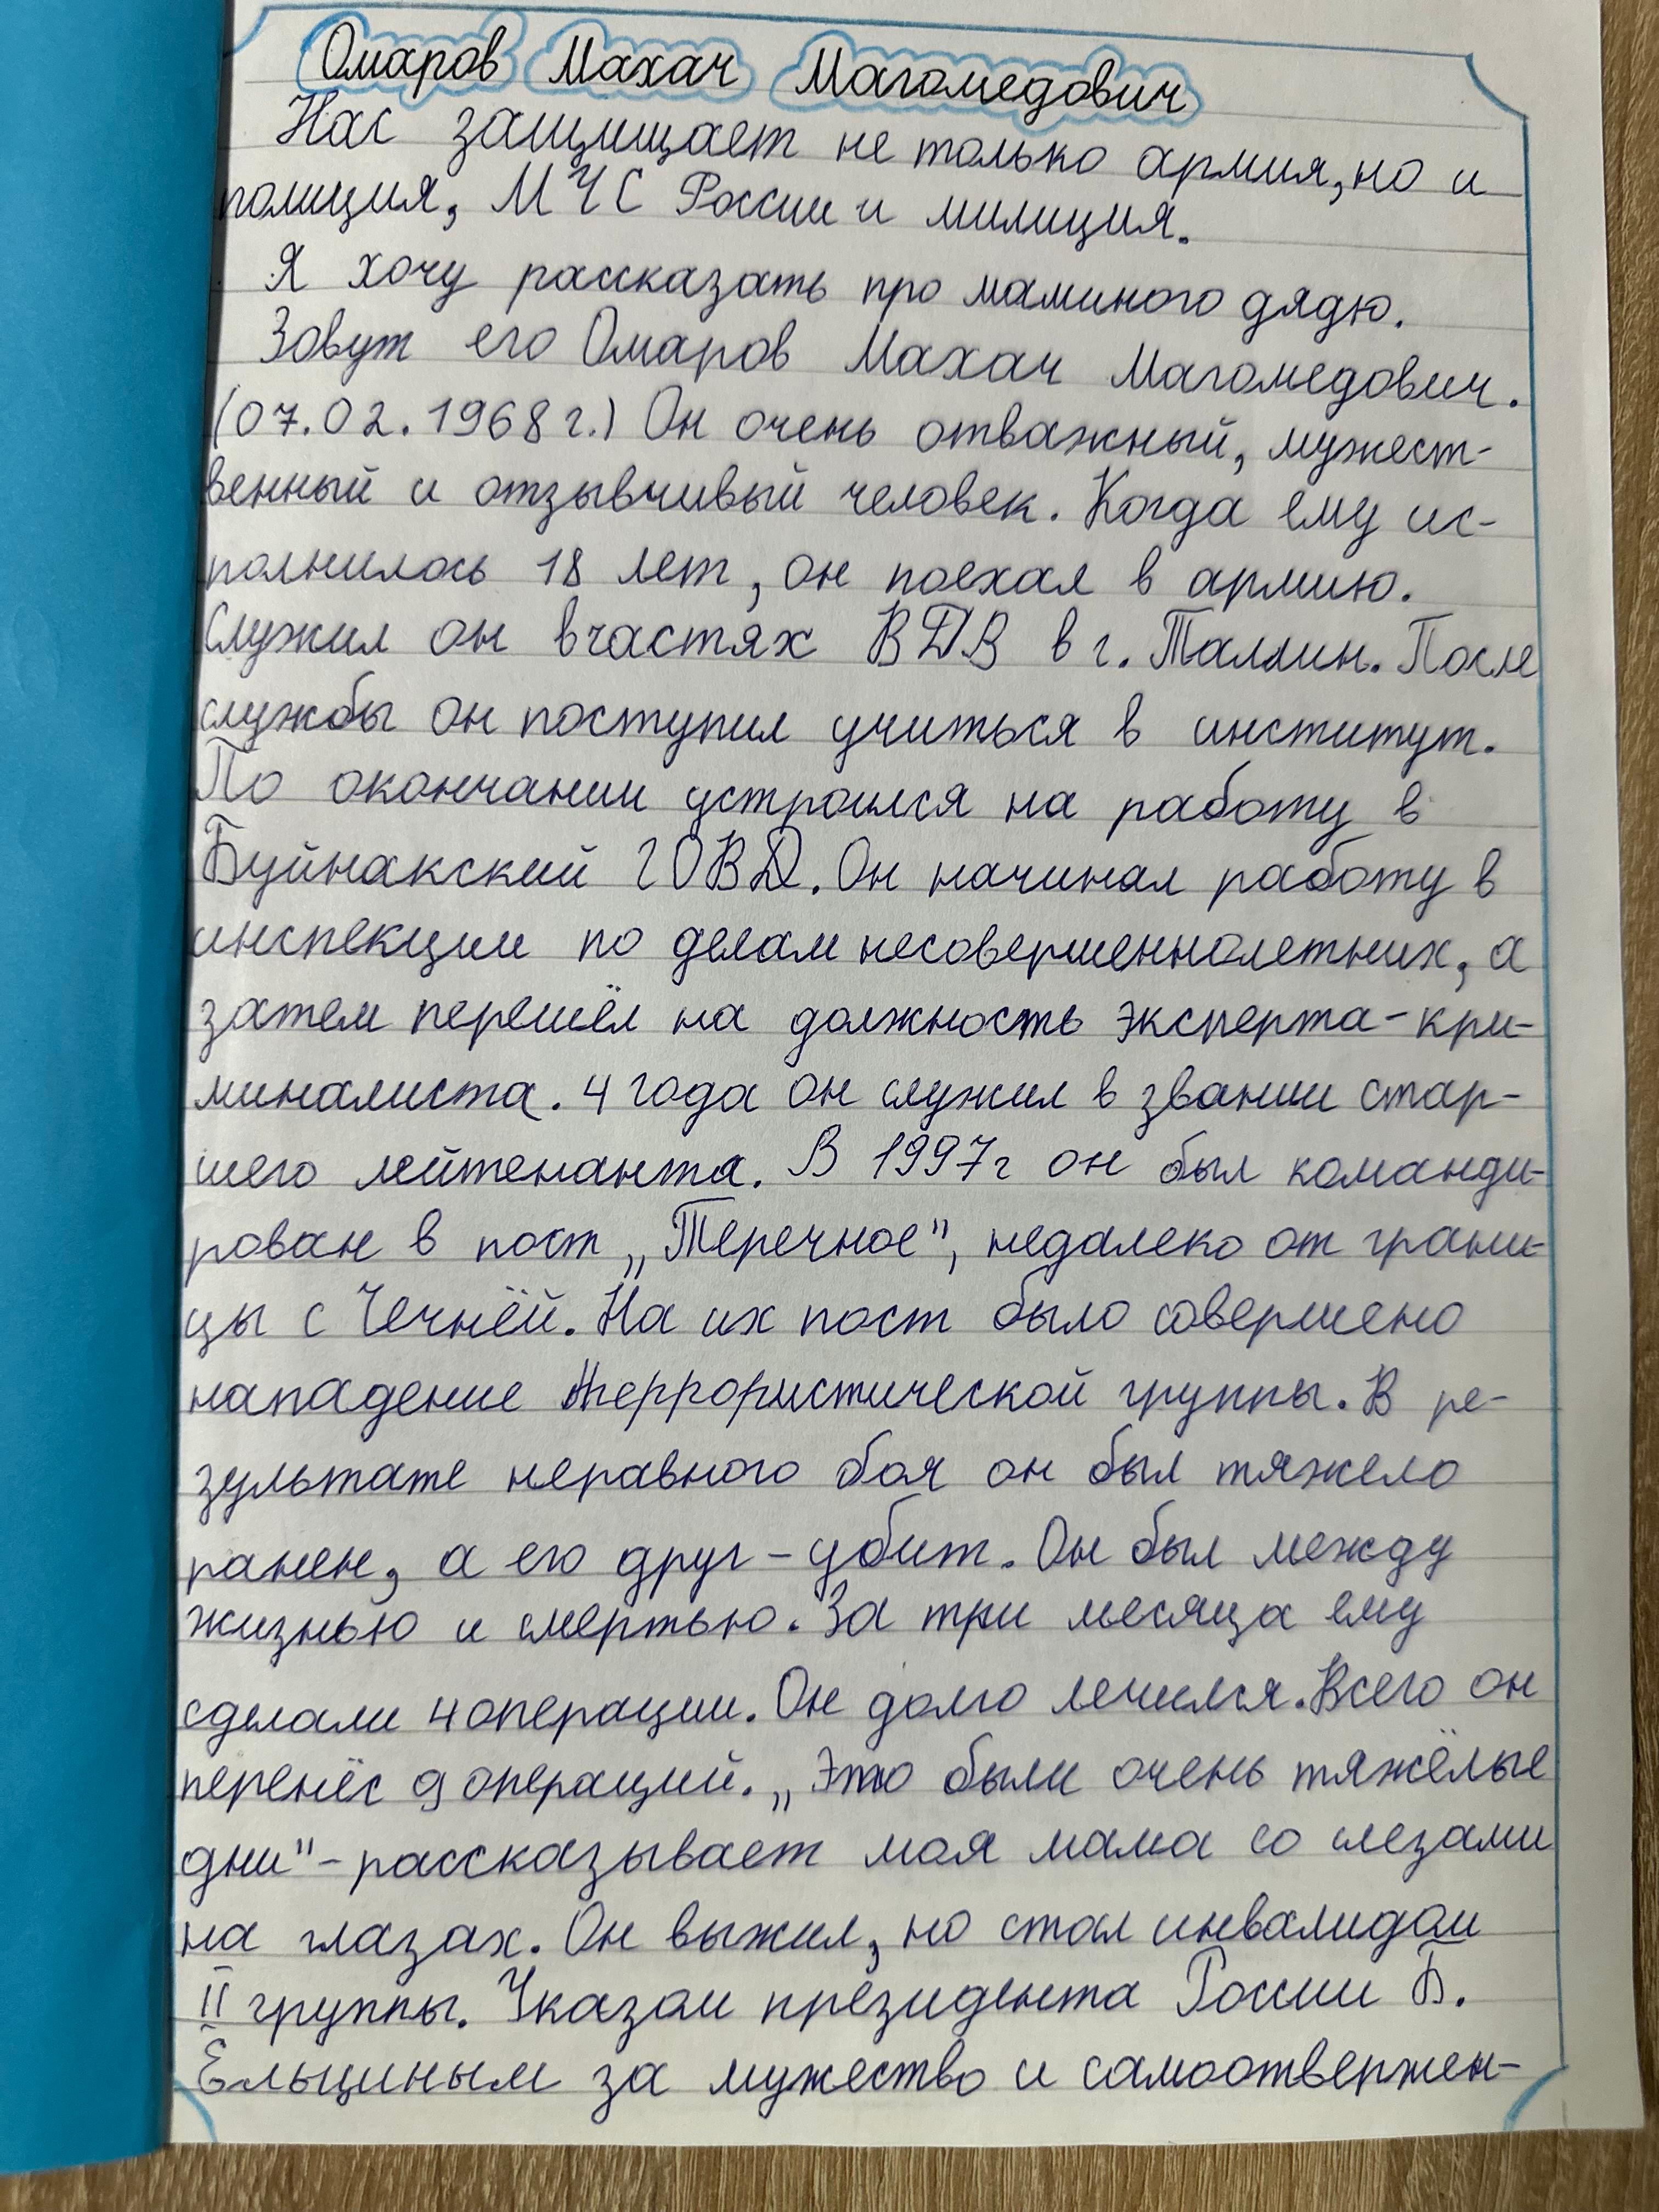 Омаров Махач Магомедович
Нас защищает не только армия, но и
полиция, МЧС России и милиция.
Я хочу рассказать про маминого дядю.
Зовут его Омаров Махач Магомедович.
(07.02.1968г.) Он очень отважный, мужест-
венный и отзывчивый человек. Когда ему ис-
полнилось 18 лет, он поехал в армию.
Служил он в частях ВДВ в г. Таллин. После
службы он поступил учиться в институт.
По окончании устроился на работу в
Буйнакский ГОВД. Он начинал работу в
инспекции по делам несовершеннолетних, а
затем перешёл на должность эксперта-кри-
миналиста. 4 года он служил в звании стар-
шего лейтенанта. В 1997г он был команди-
рован в пост „Теречное", недалеко от грани-
цы с Чечнёй. На их пост было совершено
нападение террористической группы. В ре-
зультате неравного боя он был тяжело
ранен, а его друг - убит. Он был между
жизнью и смертью. За три месяца ему
сделали 4 операции. Он долго лечился. Всего он
перенёс 9 операций. „Это были очень тяжёлые
дни" - рассказывает моя мама со слезами
на глазах. Он выжил, но стал инвалидом
II группы. Указом президента России Б.
Ельциным за мужество и самоотвержен-